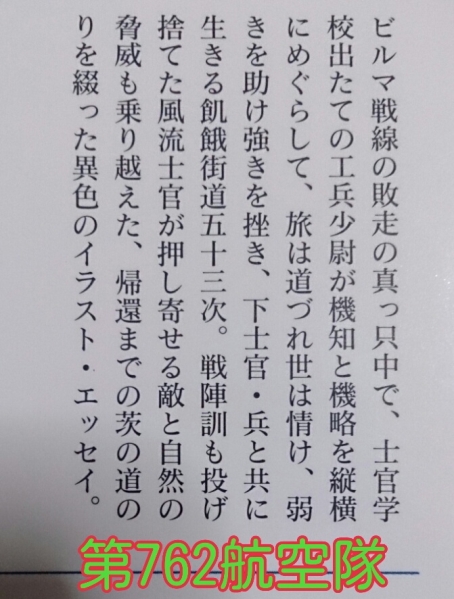 ビルマ戦線の敗走の真っ只中で、士官学
校出たての工兵少尉が機知と機略を縦横
にめぐらして、旅は道づれ世は情け、弱
きを助け強きを挫き、下士官・兵と共に
生きる飢餓街道五十三次。戦陣訓も投げ
捨てた風流士官が押し寄せる敵と自然の
脅威も乗り越えた、帰還までの茨の道の
りを綴った異色のイラスト・エッセイ。
第762航空隊